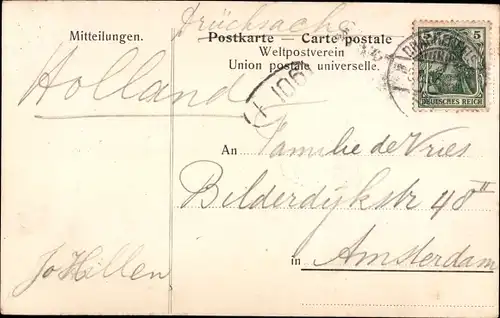 Drucksache
Mitteilungen.
Postkarte — Carte postale
Weltpostverein
Union postale universelle.
5 5
DEUTSCHES REICH
Holland
An Familie de Vries
Bilderdijkstr 48 II
in Amsterdam
Jo Hillen